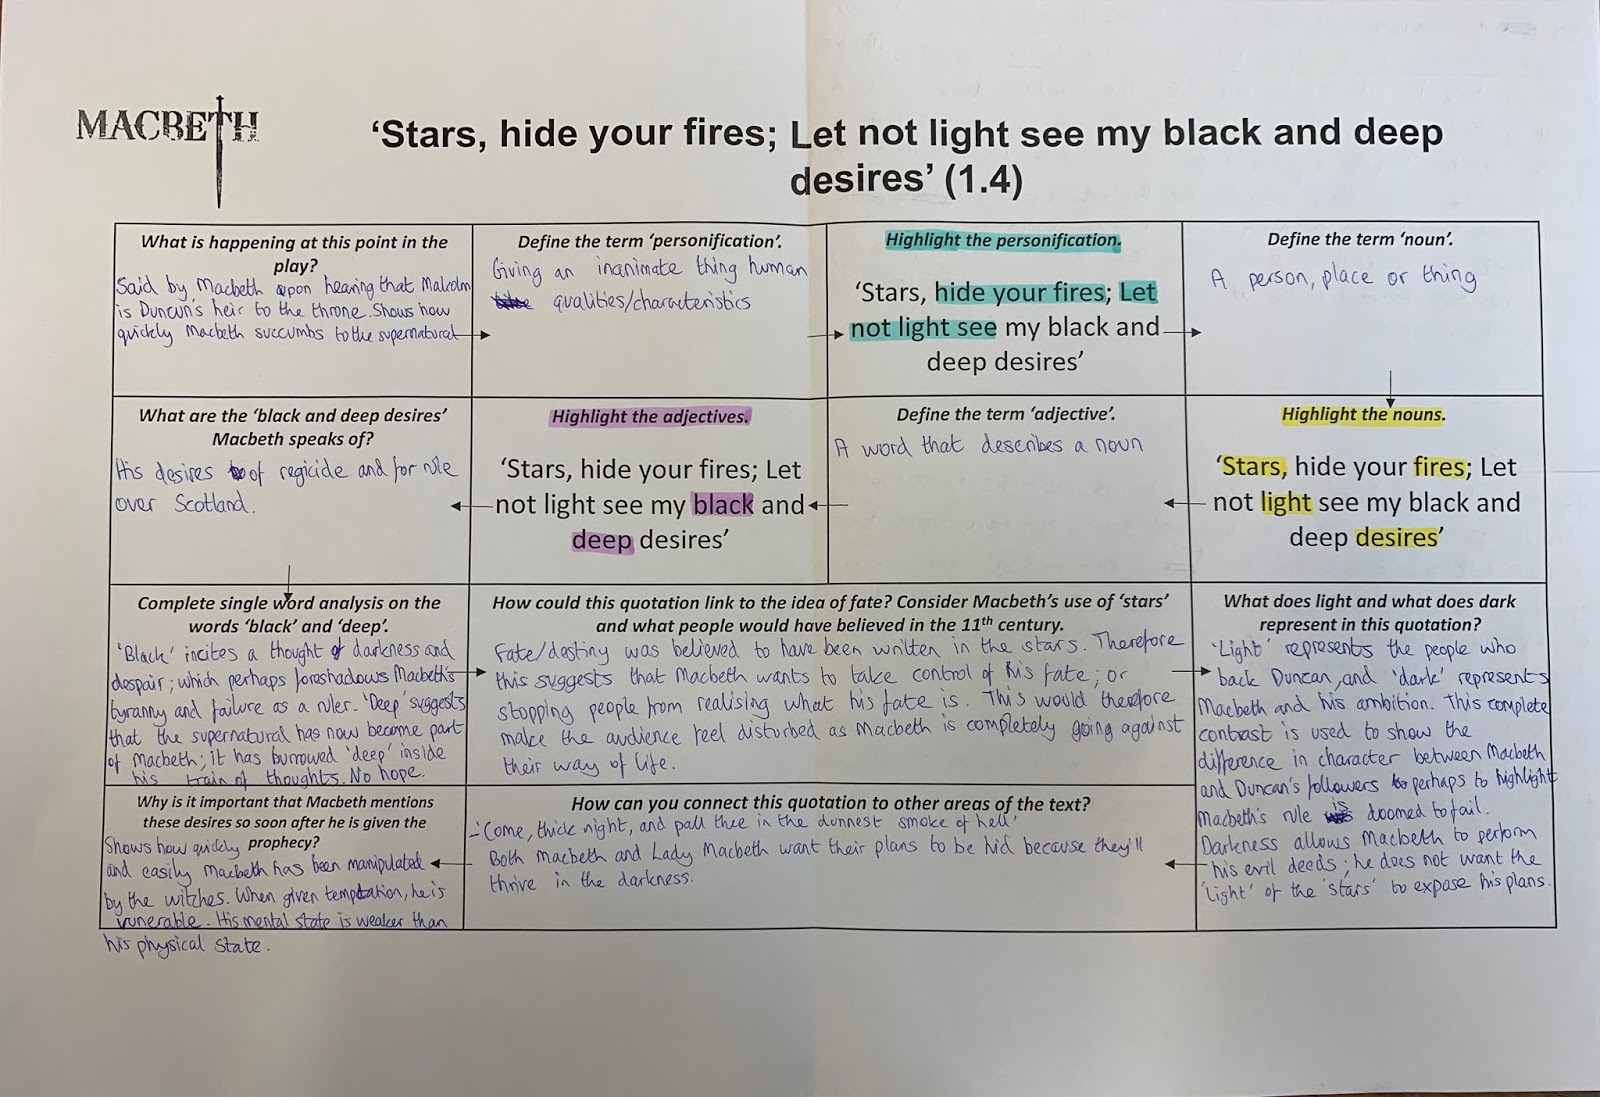 MACBETH
‘Stars, hide your fires; Let not light see my black and deep
desires’ (1.4)
What is happening at this point in the
play?
Said by Macbeth upon hearing that Malcolm
is Duncan's heir to the throne. Shows how
quickly Macbeth succumbs to the supernatural
Define the term ‘personification’.
Giving an inanimate thing human
qualities/characteristics
Highlight the personification.
‘Stars, hide your fires; Let
not light see my black and
deep desires’
Define the term ‘noun’.
A person, place or thing
Highlight the nouns.
‘Stars, hide your fires; Let
not light see my black and
deep desires’
Define the term ‘adjective’.
A word that describes a noun
Highlight the adjectives.
‘Stars, hide your fires; Let
not light see my black and
deep desires’
What are the ‘black and deep desires’
Macbeth speaks of?
His desires of regicide and for rule
over Scotland.
Complete single word analysis on the
words ‘black’ and ‘deep’.
'Black' incites a thought of darkness and
despair; which perhaps foreshadows Macbeth's
tyranny and failure as a ruler. 'Deep' suggests
that the supernatural has now become part
of Macbeth; it has burrowed 'deep' inside
his train of thoughts. No hope.
How could this quotation link to the idea of fate? Consider Macbeth’s use of ‘stars’
and what people would have believed in the 11th century.
Fate/destiny was believed to have been written in the stars. Therefore
this suggests that Macbeth wants to take control of his fate; or
stopping people from realising what his fate is. This would therefore
make the audience feel disturbed as Macbeth is completely going against
their way of life.
What does light and what does dark
represent in this quotation?
'Light' represents the people who
back Duncan, and 'dark' represents
Macbeth and his ambition. This complete
contrast is used to show the
difference in character between Macbeth
and Duncan's followers perhaps to highlight
Macbeth's rule is doomed to fail.
Darkness allows Macbeth to perform
his evil deeds; he does not want the
'light' of the 'stars' to expose his plans.
How can you connect this quotation to other areas of the text?
- 'Come, thick night, and pall thee in the dunnest smoke of hell'
Both Macbeth and Lady Macbeth want their plans to be hid because they'll
thrive in the darkness.
Why is it important that Macbeth mentions
these desires so soon after he is given the
prophecy?
Shows how quickly
and easily Macbeth has been manipulated
by the witches. When given temptation, he is
vunerable. His mental state is weaker than
his physical state.